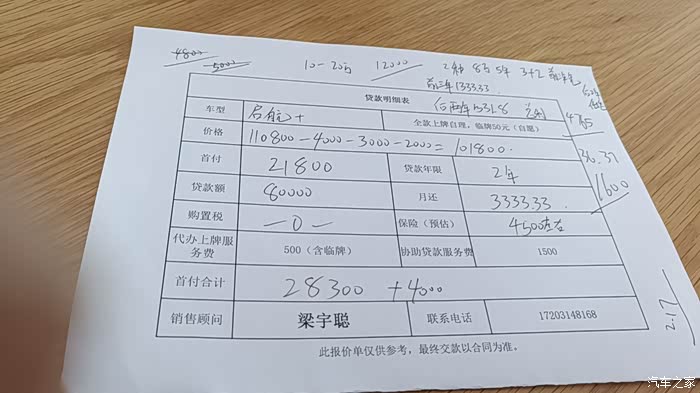 4800
5000
10-20万 12000 2种 8万 5年 3+2
前三年1333.33
后两年1531.8
贷款明细表
4785
车型 启航+ 全款上牌自理,临牌50元(自愿)
价格 110800-4000-3000-2000=101800.
36.37
首付 21800 贷款年限 2年
1600
贷款额 80000 月还 333333.
购置税 —0— 保险(预估) 4500左右
代办上牌服务费 500(含临牌) 协助贷款服务费 1500
首付合计 28300 +4000
2.17
销售顾问 梁宇聪 联系电话 17203148168
此报价单仅供参考,最终交款以合同为准。
汽车之家